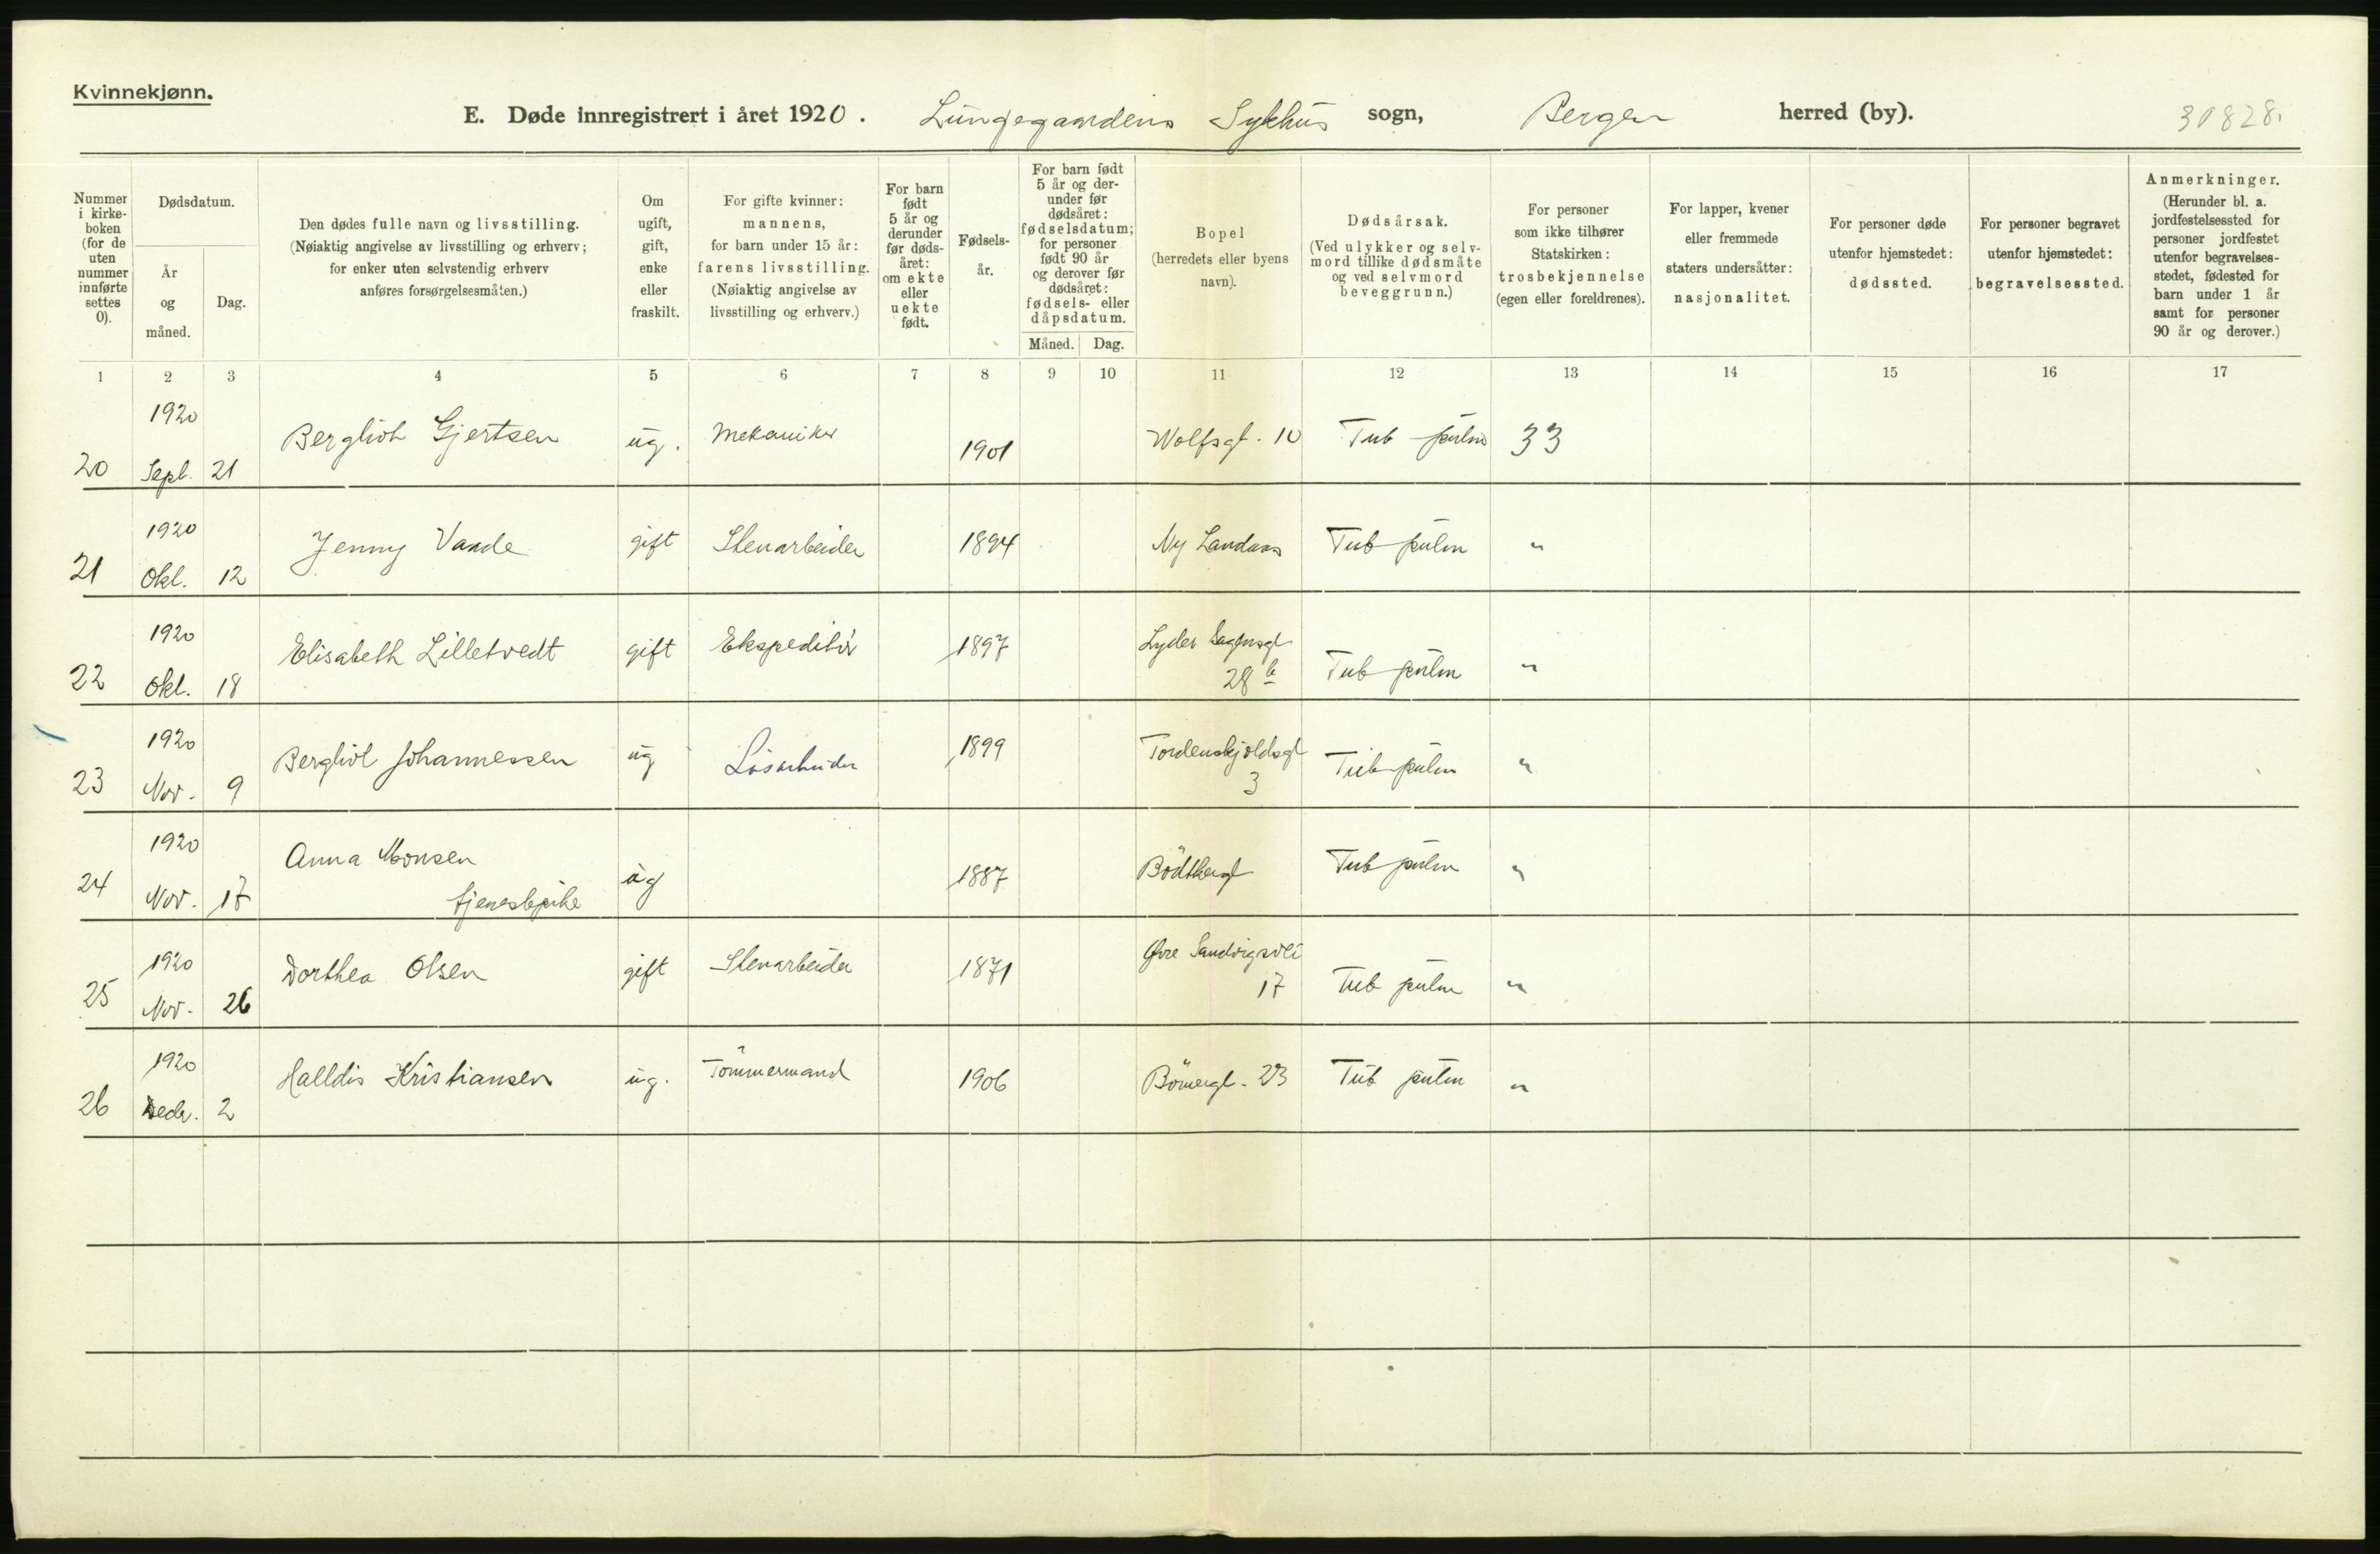 Kvinnekjønn.
E. Døde innregistrert i året 1920. Lungegaardens Sykhus sogn, Bergen herred (by). 30828.
Nummer i kirke- boken (for de uten nummer innførte settes 0).
Dødsdatum.
År og måned.
Dag.
Den dødes fulle navn og livsstilling.
(Nøiaktig angivelse av livsstilling og erhverv;
for enker uten selvstendig erhverv
anføres forsørgelsesmåten.)
Om ugift, gift, enke eller fraskilt.
For gifte kvinner:
mannens,
for barn under 15 år:
farens livsstilling.
(Nøiaktig angivelse av
livsstilling og erhverv.)
For barn født 5 år og derunder før døds- året: om ekte eller uekte født.
Fødsels- år.
For barn født 5 år og der- under før dødsåret: fødselsdatum; for personer født 90 år og derover før dødsåret: fødsels- eller dåpsdatum.
Måned. Dag.
Bopel
(herredets eller byens
navn).
Dødsårsak.
(Ved ulykker og selv-
mord tillike dødsmåte
og ved selvmord
beveggrunn.)
For personer
som ikke tilhører
Statskirken:
trosbekjennelse
(egen eller foreldrenes).
For lapper, kvener
eller fremmede
staters undersåtter:
nasjonalitet.
For personer døde
utenfor hjemstedet:
dødssted.
For personer begravet
utenfor hjemstedet:
begravelsessted.
Anmerkninger.
(Herunder bl. a.
jordfestelsessted for
personer jordfestet
utenfor begravelses-
stedet, fødested for
barn under 1 år
samt for personer
90 år og derover.)
1 2 3 4 5 6 7 8 9 10 11 12 13 14 15 16 17
20 1920 Sept. 21 Bergliot Gjertsen ug. Mekaniker 1901 Wolfsgt. 10 Tub pulm 33
21 1920 Okt. 12 Jenny Vaade gift Stenarbeider 1894 Ny Landaas Tub pulm "
22 1920 Okt. 18 Elisabeth Lilletvedt gift Ekspeditör 1897 Lyder Sagensgt 28 b Tub pulm "
23 1920 Nov. 9 Bergliot Johannessen ug Lösarbeider 1899 Tordenskjoldsgt 3 Tub pulm "
24 1920 Nov. 17 Anna Monsen tjenestepike ug 1887 Bödtkergt Tub pulm "
25 1920 Nov. 26 Dorthea Olsen gift Stenarbeider 1871 Øvre Sandvigsvei 17 Tub pulm "
26 1920 Decbr. 2 Halldis Kristiansen ug. Tömmermand 1906 Bömergt. 23 Tub pulm "